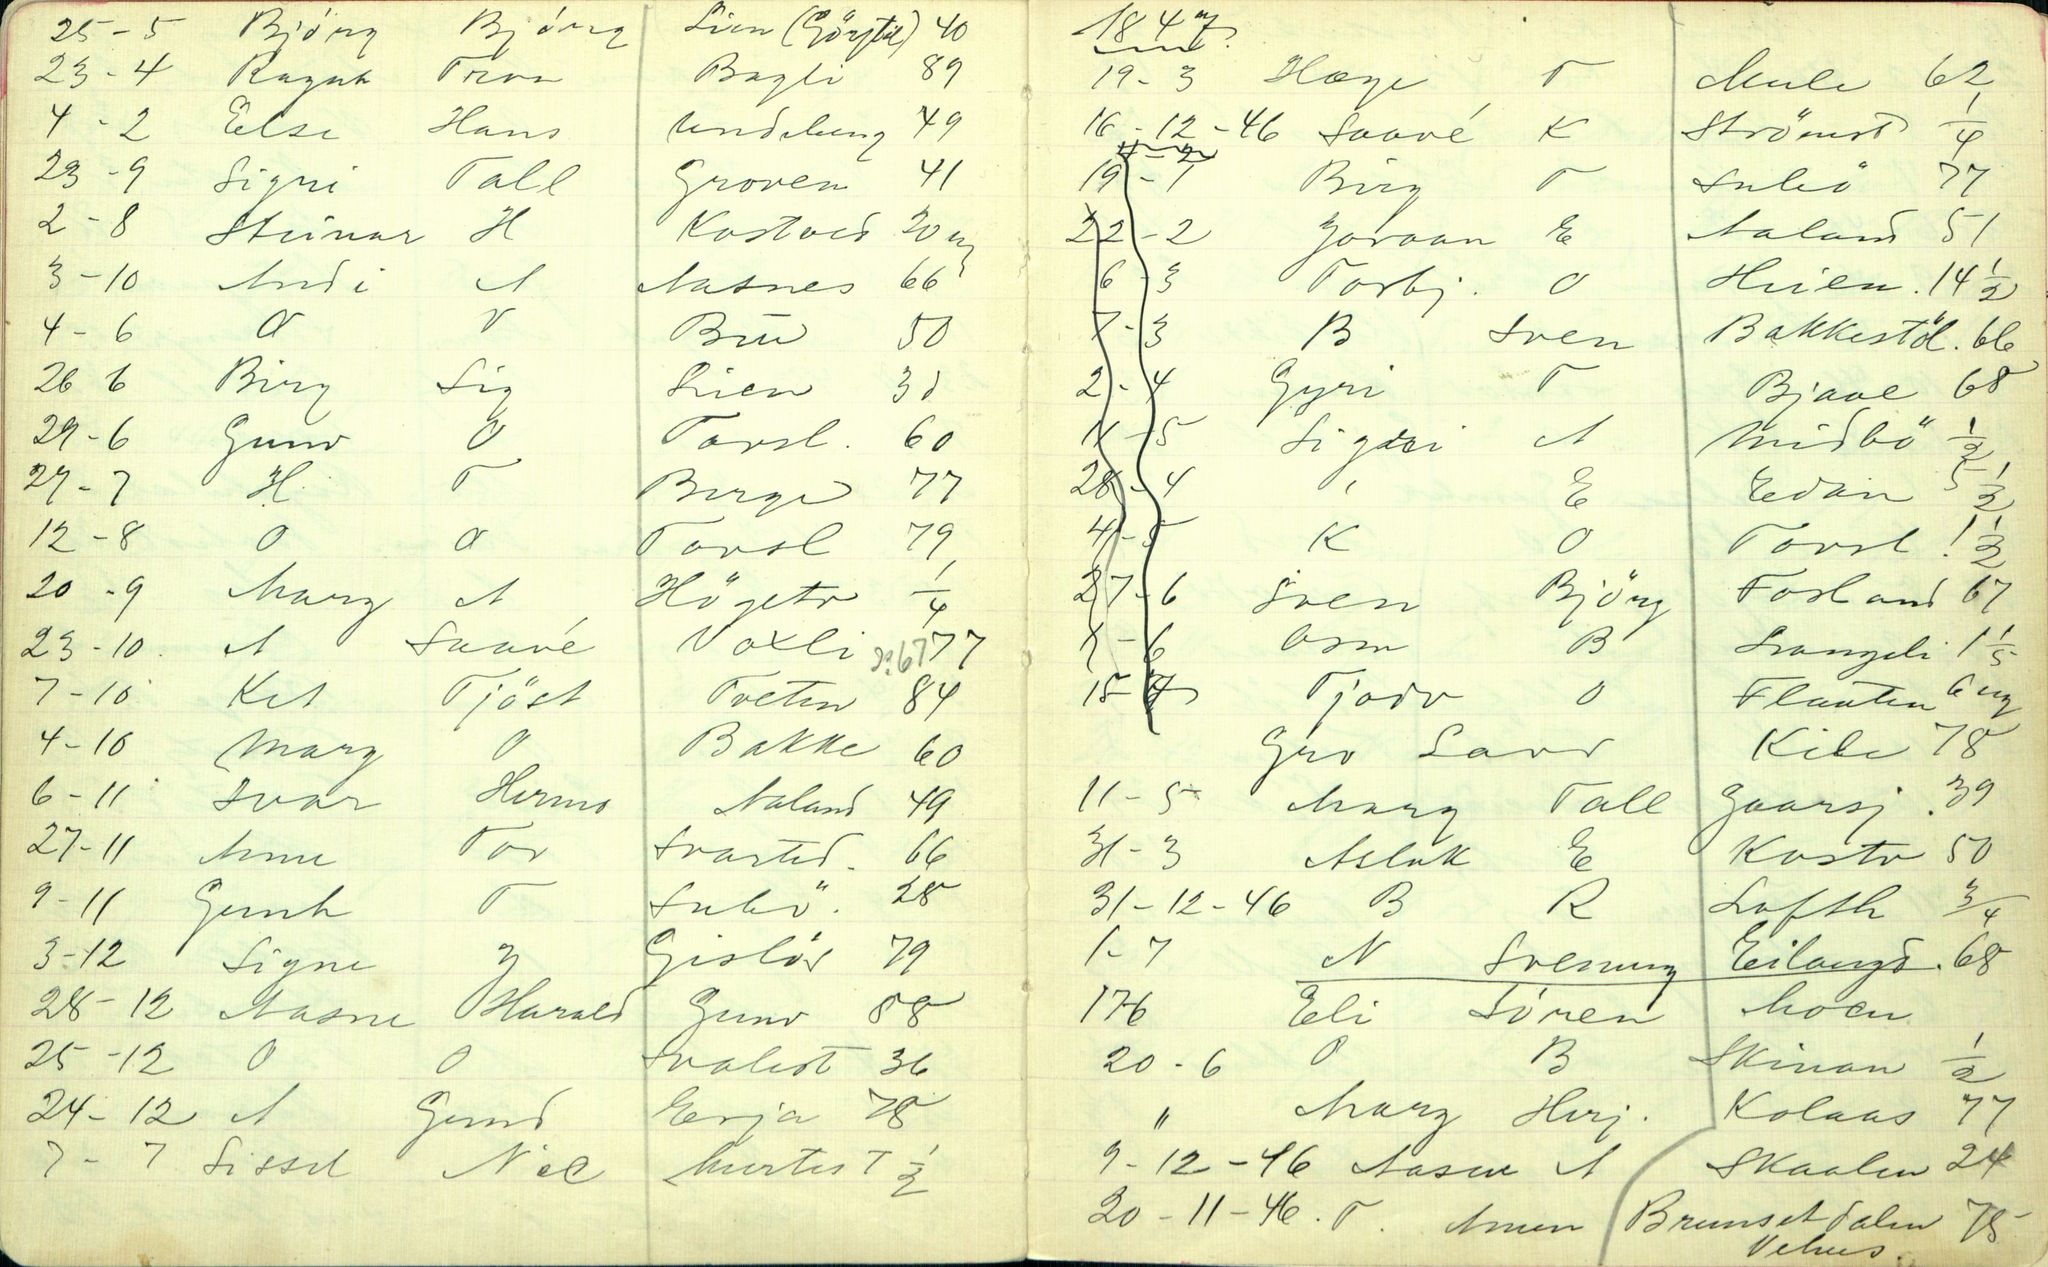 25-5 Björg Björg Lien (Görstöl) 40
23-4 Ragnh Tron Bagli 89
4-2 Else Hans Undeberg 49
23-9 Signi Tall Groven 41
2-8 Steinar H Kostved 20 ug
3-10 Andi A Aasnes 66
4-6 O O Bru 50
26 6 Birg Sig Lien 31
29-6 Gunv O Torsl. 60
27-7 H T Berge 77
12-8 O O Torsl 79
20-9 Marg A Högetv 1/4
23-10. A Saavé Voxli 77
7-10 Ket Tjöst Tveten 84
4-10 Marg O Bakke 60
6-11 Ivar Hermo Naland 49
27-11 Anne Tor Svartd. 66
9-11 Gunh T Sulvö. 28
3-12 Signe G Gislös 79
28-12 Aasne Harald Gunv 88
25-12 O O Svalest 36
24-12 A Gund Erja 78
7-7 Sissel Nic 1/2
1847.
19-3 Hæge T Mule 62
16-12-46 Saavé K Strömst 1/4
19-1 Birg T Sulvö 77
22-2 Joraan E Naland 51
6-3 Torbj. O Heien. 14 1/2
7-3 B Sven Bakkestöl. 66
2-4 Gyri T Bjaae 68
11-5 Sigri A Midbö 1/2
28-4 " E Edan 5 1/2
4-5 K O Torsl. 1 1/2
27-6 Sven Björg Fosland 67
7-6 Osm B Langeli 1 1/5
15-7 Tjodv O Flaaten 6 ug
Gro Lavr Kile 78
11-5 Marg Tall Gaarsj. 39
31-3 Aslak E Kostv 50
31-12-46 B R Lofth 3/4
1-7 N Svenung Eilangd. 68
17-6 Eli Sören Moen
20-6 O B Skinan 1/2
" Marg Herj. Kolaas 77
9-12-46 Aasne A Skaalen 24
20-11-46. T. Amun Brunsetdalen 75
Vehus.